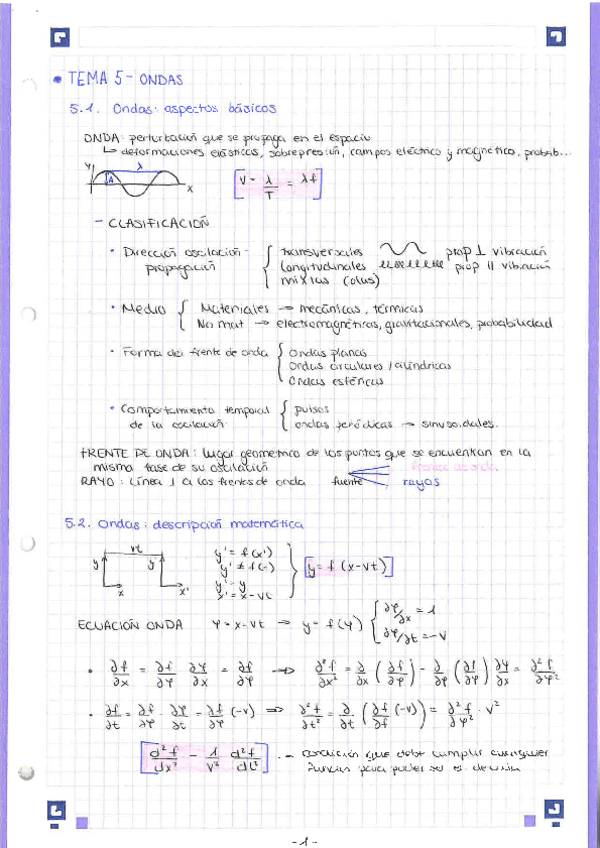 • TEMA 5 - ONDAS
5.1. Ondas: aspectos básicos
ONDA: perturbación que se propaga en el espacio
↳ deformaciones elásticas, sobrepresión, campos eléctrico y magnético, probab...
y A λ x
v = λ/T = λf
- CLASIFICACIÓN
• Dirección oscilación - propagación { transversales prop ⊥ vibración
longitudinales prop || vibración
mixtas (olas)
• Medio { Materiales → mecánicas, térmicas
No mat → electromagnéticas, gravitacionales, probabilidad
• Forma del frente de onda { Ondas planas
Ondas circulares / cilíndricas
Ondas esféricas
• Comportamiento temporal de la oscilación { pulsos
ondas periódicas → sinusoidales.
FRENTE DE ONDA: lugar geométrico de los puntos que se encuentran en la
misma fase de su oscilación
frente de onda
RAYO: línea ⊥ a los frentes de onda fuente rayos
5.2. Ondas: descripción matemática
vt
y x y' x'
y' = f(x')
y' ≠ f(-)
y' = y
x' = x - vt
y = f (x-vt)
ECUACIÓN ONDA φ = x - vt → y = f(φ) { ∂φ/∂x = 1
∂φ/∂t = -v
• ∂f/∂x = ∂f/∂φ ∂φ/∂x = ∂f/∂φ → ∂²f/∂x² = ∂/∂x (∂f/∂φ) = ∂/∂φ (∂f/∂φ) ∂φ/∂x = ∂²f/∂φ²
• ∂f/∂t = ∂f/∂φ · ∂φ/∂t = ∂f/∂φ (-v) ⇒ ∂²f/∂t² = ∂/∂t (∂f/∂f (-v)) = ∂²f/∂φ² · v²
d²f/dx² = 1/v² d²f/dt² - condición que debe cumplir cualquier
función para poder ser
- 1 -